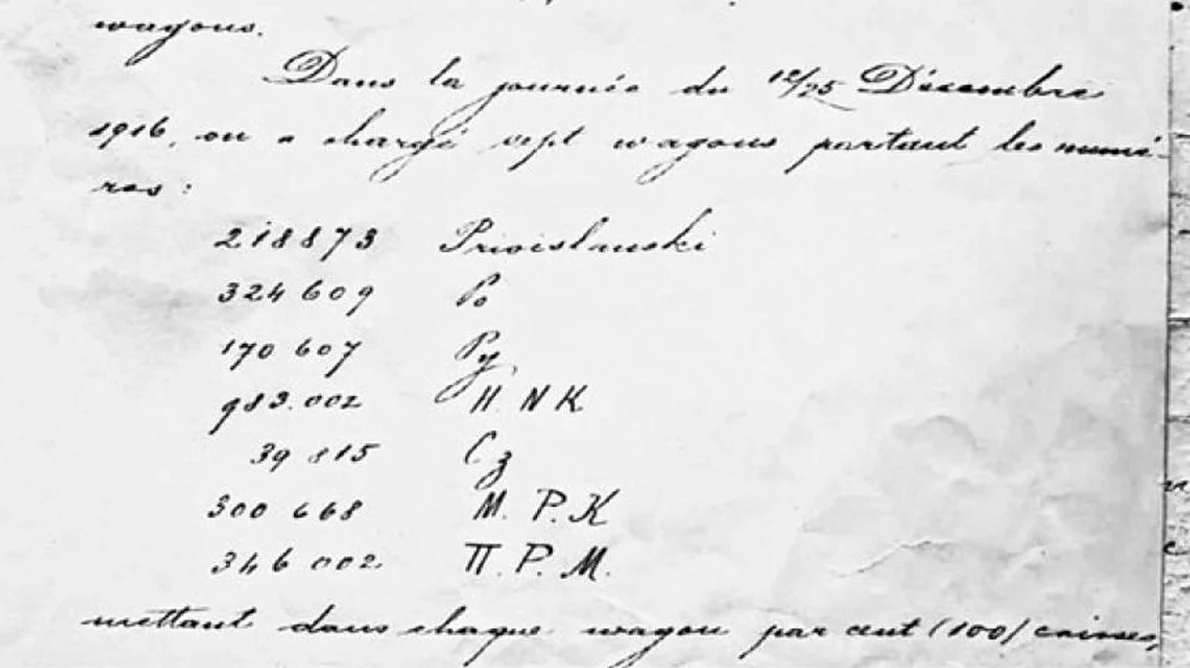 wagons.
Dans la journée du 12/25 Décembre
1916, on a chargé sept wagons portant les numé-
ros :
218873 Privislanski
324 609 Po
170 607 Py
983.002 H. N K
39 815 Cz
300 668 M. P. K
346 002 П. Р. М.
mettant dans chaque wagon par cent (100/ caisses,